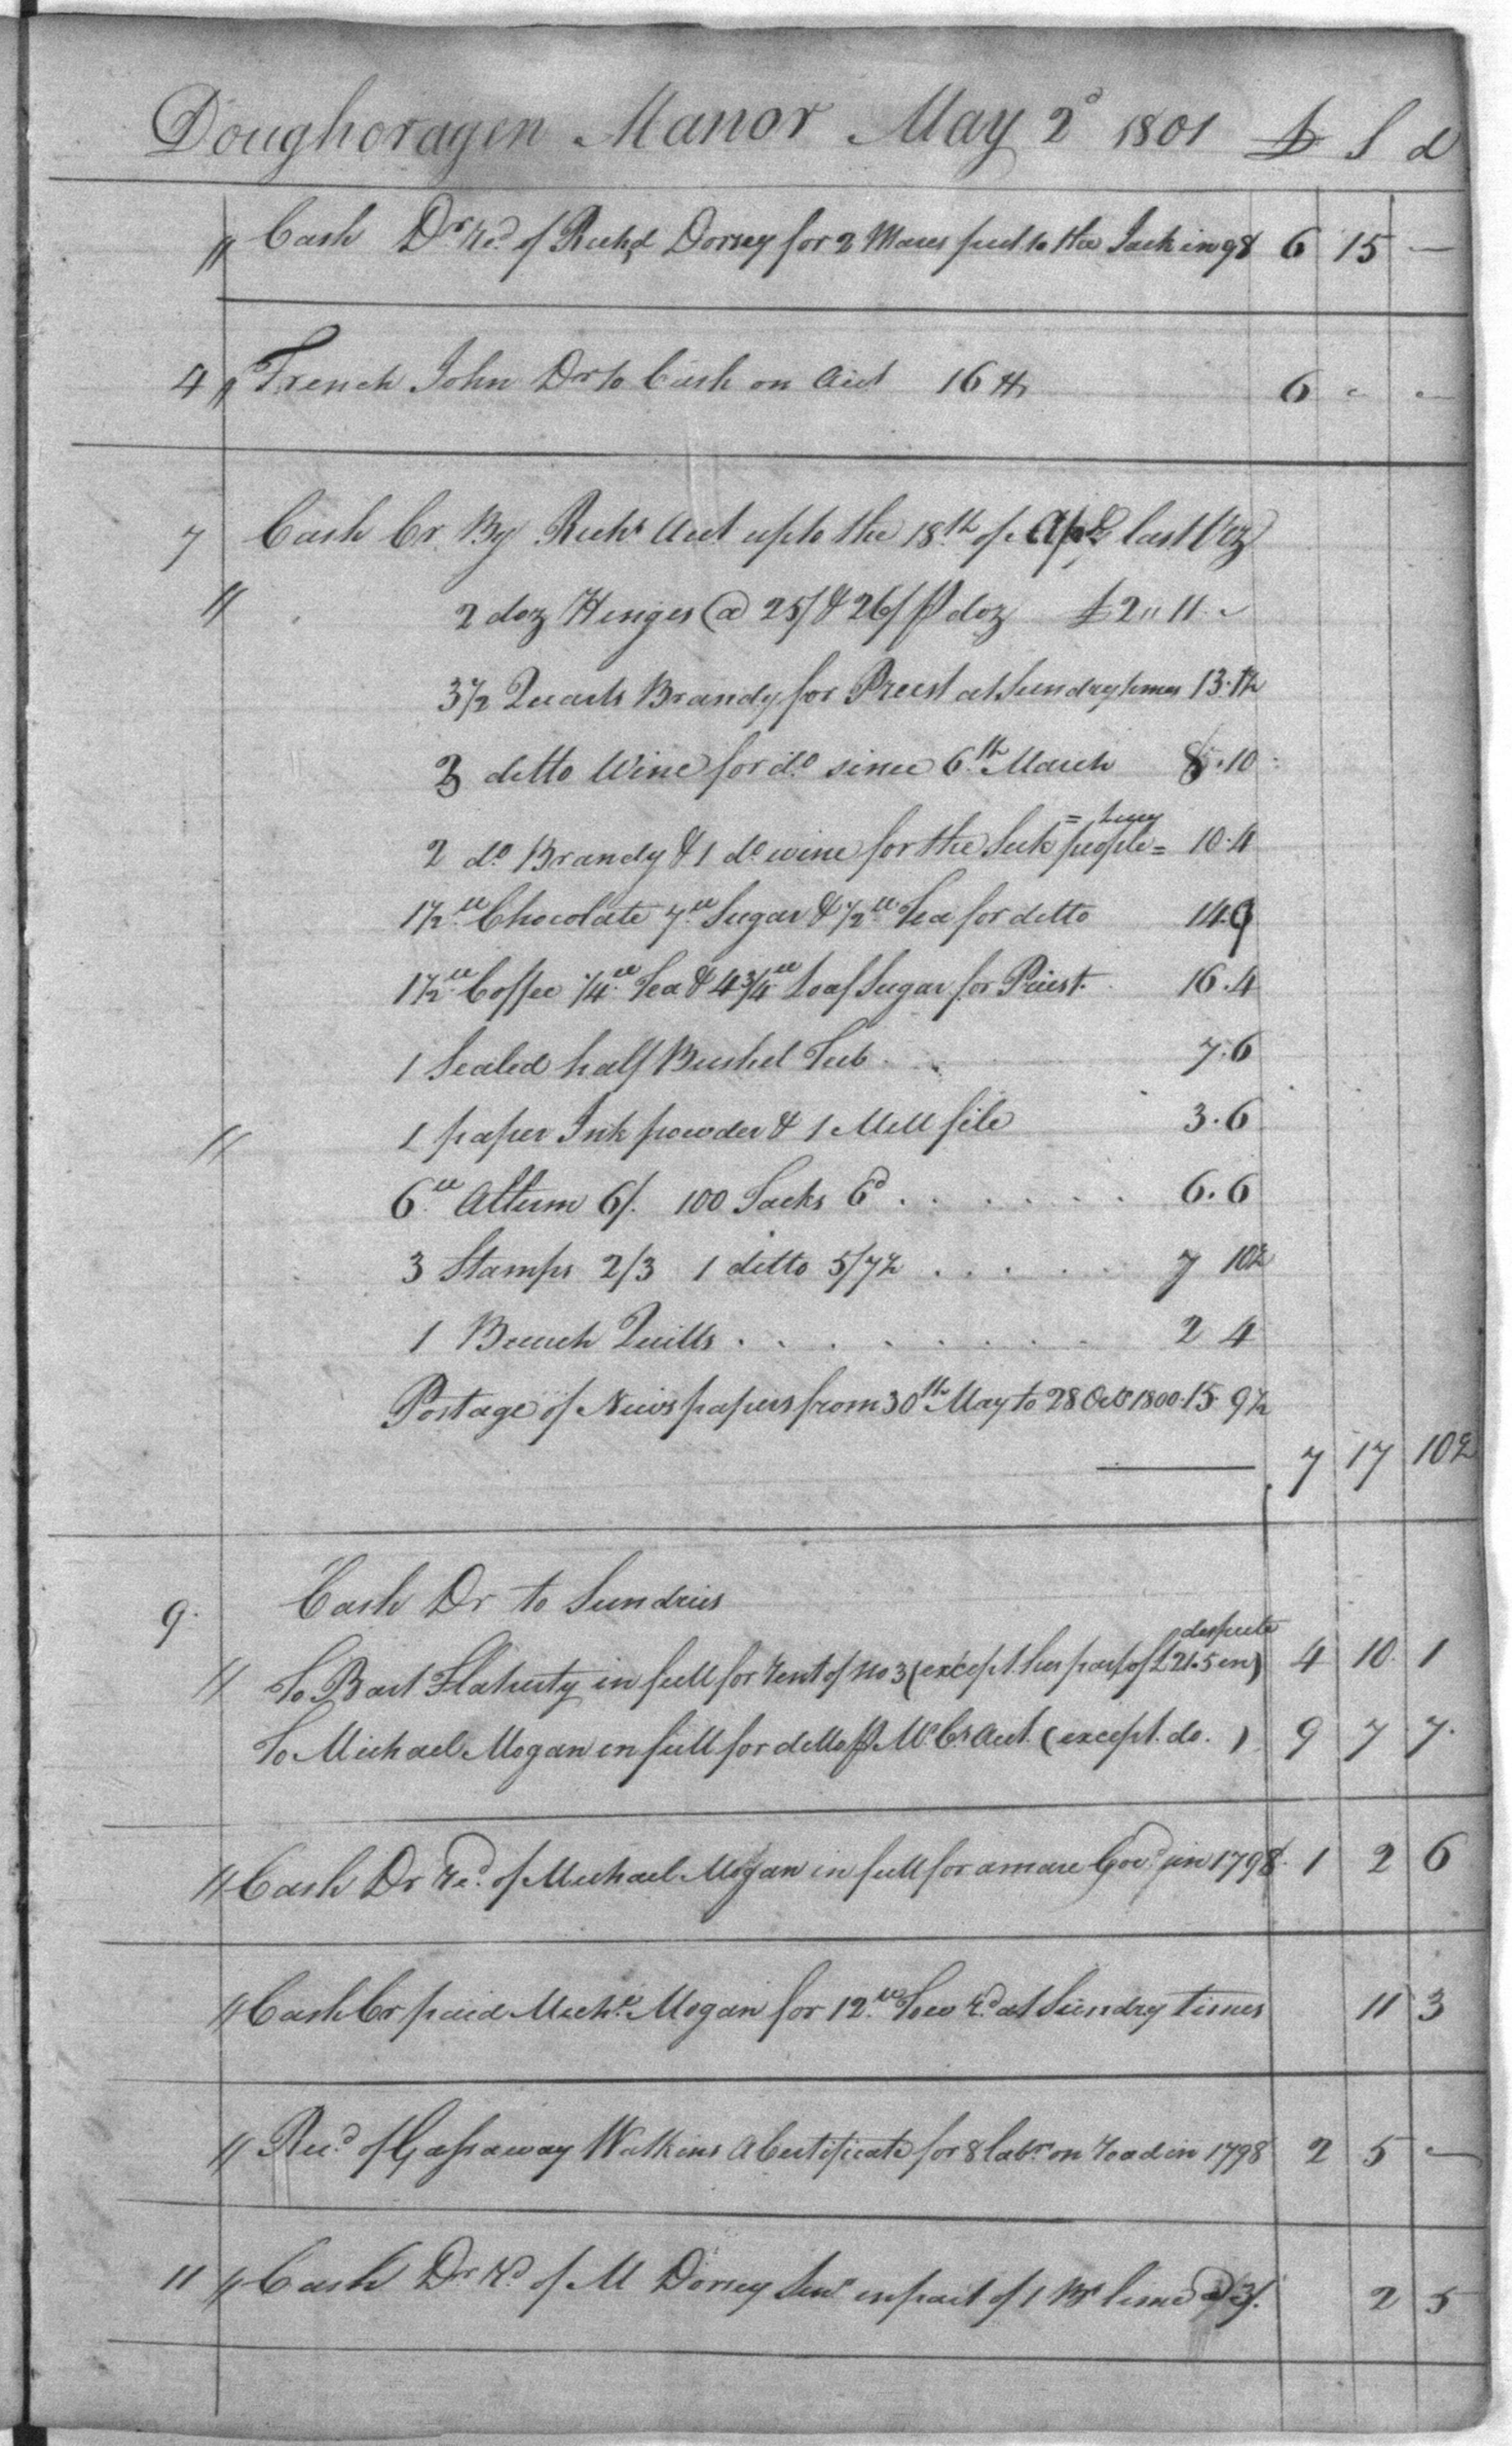 Doughoragen Manor May 2d 1801 £ S d
" Cash Dr Recd of Richd Dorsey for 2 Mares put to the Jack in 98 6 15 —
4 " French John Dr to Cash on Acct 16 $ 6 " "
7 Cash Cr By Richs Acct up to the 18th of Apl last Viz
" 2 doz Hinges @ 25/ & 26/ p doz £2 " 11 "
3 1/2 Quarts Brandy for Preist at Sundry times 13. 1 1/2
3 ditto Wine for do since 6th March 8.10
= Lucy
2 do Brandy & 1 do wine for the Sick people = 10.4
1 1/2 ll Chocolate 7 ll Sugar & 1/2 ll Tea for ditto 14.9
1 1/2 ll Coffee 1/4 ll Tea & 4 3/4 ll Loaf Sugar for Priest. 16.4
1 Sealed half Bushel Tub 7.6
" 1 paper Ink powder & 1 Mill file 3.6
6 ll Allum 6/. 100 Tacks 6d . . . . . . 6.6
3 Stamps 2/3 1 ditto 5/7 1/2 . . . . . 7 10 1/2
1 Bunch Quills . . . . . . . . 2 4
Postage of Newspapers from 30th May to 28 Octr 1800. 15. 9 1/2
7 17 10 1/2
9. Cash Dr to Sundries
despute
" To Bart Flaherty in full for rent of No 3 (except his part of £21.5 in) 4 10 1
To Michael Mogan in full for ditto p Mr Crs Acct. (except. do. ) 9 7 7.
" Cash Dr Recd. of Michael Mogan in full for a mare Cov.d in 1798. 1 2 6
" Cash Cr paid Michl. Mogan for 12 ll Tow Rd at Sundry times 11 3
" Recd of Gassaway Watkins a Certificate for 8 labrs on road in 1798 2 5 —
11 " Cash Dr Rd of M Dorsey Senr in part of 1 Bl lime @ 3/. 2 5